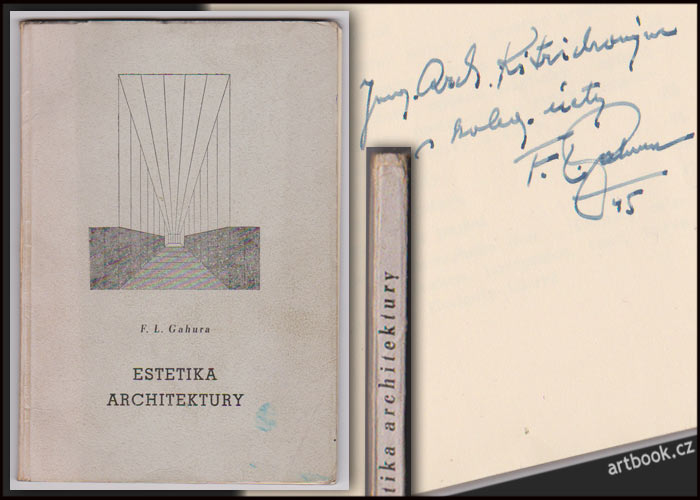 F. L. Gahura
ESTETIKA
ARCHITEKTURY
tika architektury
Jng. Arch.
koleg. úcty
F. L. Gahura
45
artbook.cz